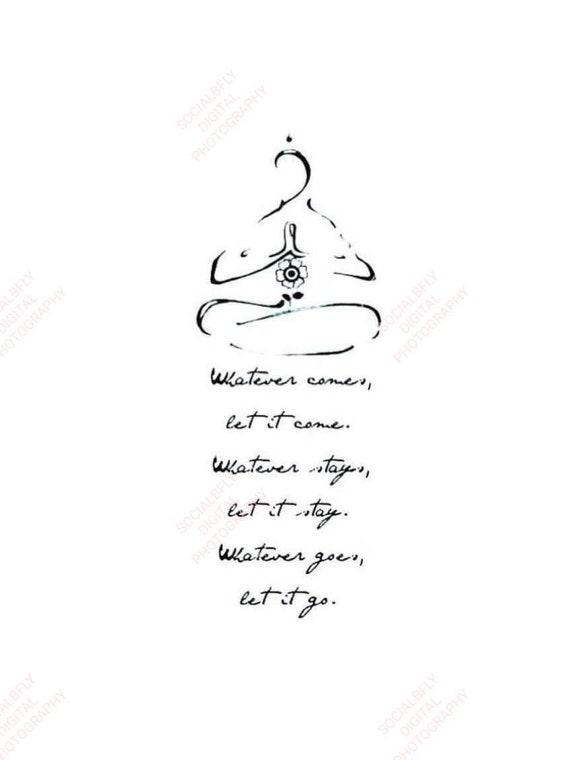 SOCIALBFLY
DIGITAL
PHOTOGRAPHY
Whatever comes,
let it come.
SOCIALBFLY
DIGITAL
PHOTOGRAPHY
SOCIALBFLY
DIGITAL
PHOTOGRAPHY
Whatever stays,
let it stay.
SOCIALBFLY
DIGITAL
PHOTOGRAPHY
Whatever goes,
let it go.
SOCIALBFLY
DIGITAL
PHOTOGRAPHY
SOCIALBFLY
DIGITAL
PHOTOGRAPHY